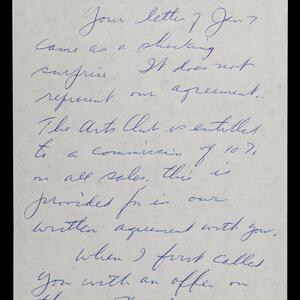 Your letter of Jan 7
came as a shocking
surprise. It does not
represent our agreement.
The Arts Club is entitled
to a commission of 10%
on all sales. this is
provided for in our
written agreement with you.
When I first called
you with an offer on